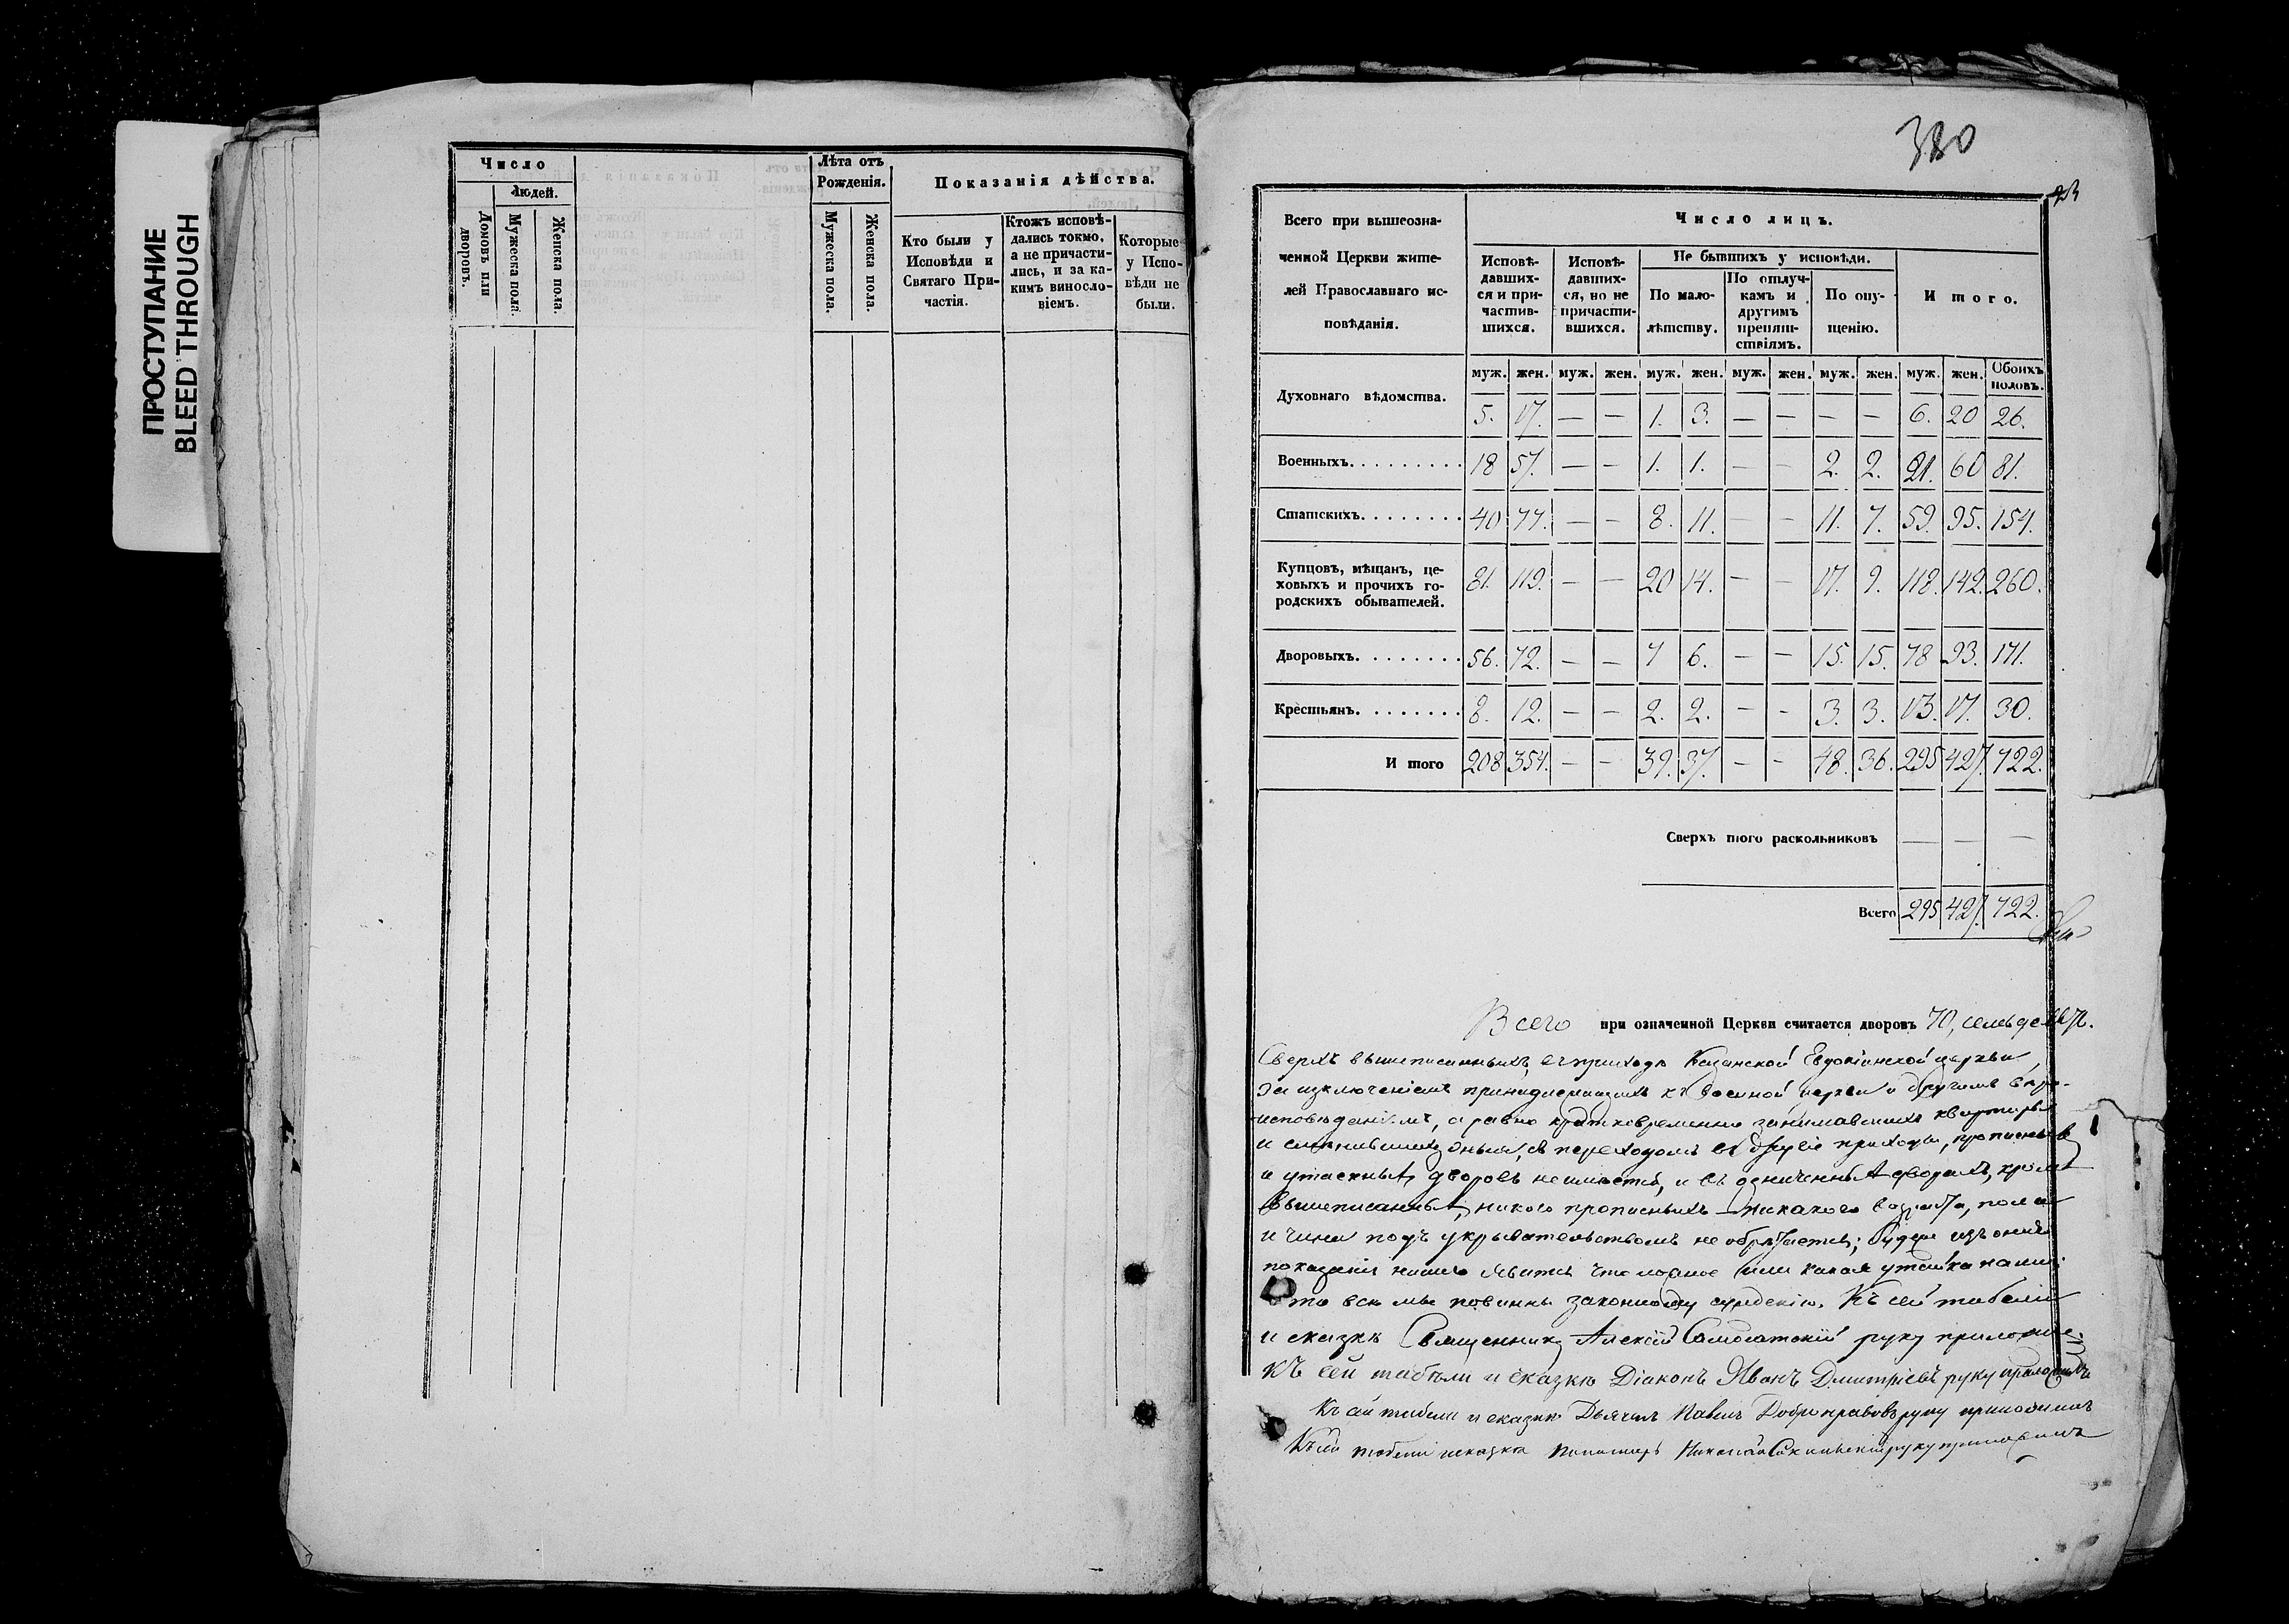 ПРОСТУПАНИЕ
BLEED THROUGH
Число
Людей.
Домовъ или дворовъ.
Мужеска пола.
Женска пола.
Лѣта отъ Рожденія.
Мужеска пола.
Женска пола.
Показанія дѣйства.
Кто были у Исповѣди и Святаго Причастія.
Ктожъ исповѣ-
дались токмо,
а не причасти-
лись, и за ка-
кимъ виносло-
віемъ.
Которые
у Испо-
вѣди не
были.
380
Всего при вышеозна-
ченной Церкви жите-
лей Православнаго ис-
повѣданія.
Число лицъ.
Исповѣ-
давших-
ся и при-
частив-
шихся.
Исповѣ-
давших-
ся, но не
причасти-
вшихся.
Не бывшихъ у исповѣди.
По мало-
лѣтству.
По отлуч-
камъ и
другимъ
препят-
ствіямъ.
По опу-
щенію.
И того.
муж. жен. муж. жен. муж. жен. муж. жен. муж. жен. муж. жен. Обоихъ половъ.
Духовнаго вѣдомства.
5. 17. — — 1. 3. — — — — 6. 20 26.
Военныхъ. 18 57. — — 1. 1. — — 2. 2. 21. 60 81.
Статскихъ. 40 77. — — 8. 11. — — 11. 7. 59. 95. 154.
Купцовъ, мѣщанъ, це-
ховыхъ и прочихъ го-
родскихъ обывателей.
81. 119. — — 20 14. — — 17. 9. 118. 142. 260.
Дворовыхъ. 56. 72. — — 7 6. — — 15. 15. 78 93. 171.
Крестьянъ. 8. 12. — — 2. 2. — — 3. 3. 13. 17. 30.
И того 208 354. — — 39. 37. — — 48. 36. 295 427. 722.
Сверхъ того раскольниковъ — — —
Всего 295 427. 722.
Всего при означенной Церкви считается дворовъ 70, семьде
Сверхъ вышеписанныхъ, въ приходѣ Казанской Евдокіинской церкви,
за изключеніемъ принадлежащихъ къ военной церкви и другимъ вѣро-
исповѣданіямъ, а равно кратковременно занимавшихъ квартиры
и смѣнившихъ оныя, съ переходомъ въ другіе приходы, прописныхъ
и утаенныхъ дворовъ неимѣется, и въ означенныхъ дворахъ, кромѣ
вышеписанныхъ, никого прописныхъ никакого возраста, пола
и чина подъ укрывательствомъ не обрѣтается; буде изъ онаго
показанія нашего явится что ложное или какая утайка нами:
то всѣ мы повинны законному сужденію. Къ сей табели
и сказкѣ Священникъ Алексій Самосатскій руку приложилъ.
Къ сей табѣли и сказкѣ Діаконъ Иванъ Дмитріевъ руку приложилъ
Къ сей табели и сказкѣ Дьячекъ Павелъ Добронравовъ руку приложилъ
Къ сей табели и сказкѣ Пономарь Николай руку приложилъ